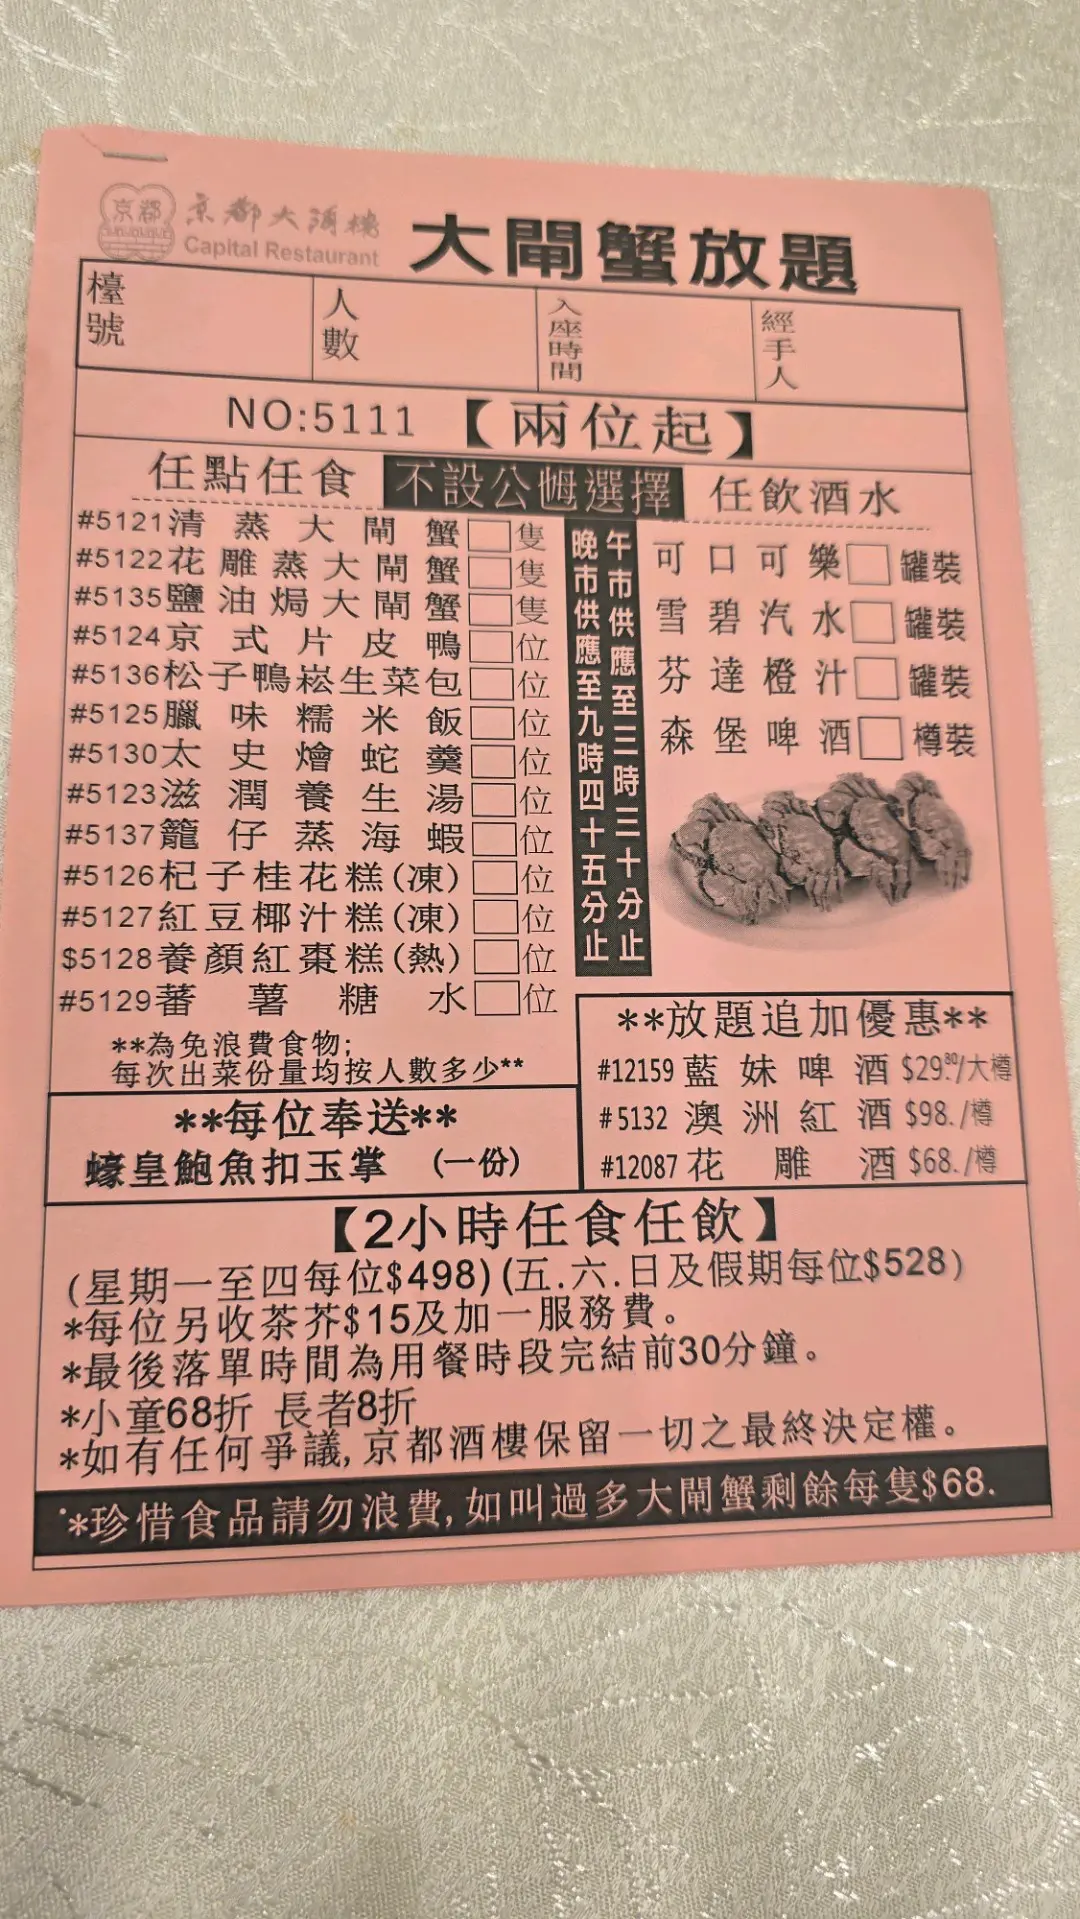 京都
京都大酒樓
Capital Restaurant
大閘蟹放題
檯號
人數
入座時間
經手人
NO:5111 【兩位起】
任點任食
不設公乸選擇
任飲酒水
#5121清蒸大閘蟹 隻
#5122花雕蒸大閘蟹 隻
#5135鹽油焗大閘蟹 隻
#5124京式片皮鴨 位
#5136松子鴨崧生菜包 位
#5125臘味糯米飯 位
#5130太史燴蛇羹 位
#5123滋潤養生湯 位
#5137籠仔蒸海蝦 位
#5126杞子桂花糕(凍) 位
#5127紅豆椰汁糕(凍) 位
$5128養顏紅棗糕(熱) 位
#5129蕃薯糖水 位
**為免浪費食物;
每次出菜份量均按人數多少**
午市供應至三時三十分止
晚市供應至九時四十五分止
可口可樂 罐裝
雪碧汽水 罐裝
芬達橙汁 罐裝
森堡啤酒 樽裝
**放題追加優惠**
#12159 藍妹啤酒 $29.80/大樽
#5132 澳洲紅酒 $98./樽
#12087 花雕酒 $68./樽
**每位奉送**
蠔皇鮑魚扣玉掌 (一份)
【2小時任食任飲】
(星期一至四每位$498)(五.六.日及假期每位$528)
*每位另收茶芥$15及加一服務費。
*最後落單時間為用餐時段完結前30分鐘。
*小童68折 長者8折
*如有任何爭議,京都酒樓保留一切之最終決定權。
*珍惜食品請勿浪費,如叫過多大閘蟹剩餘每隻$68.